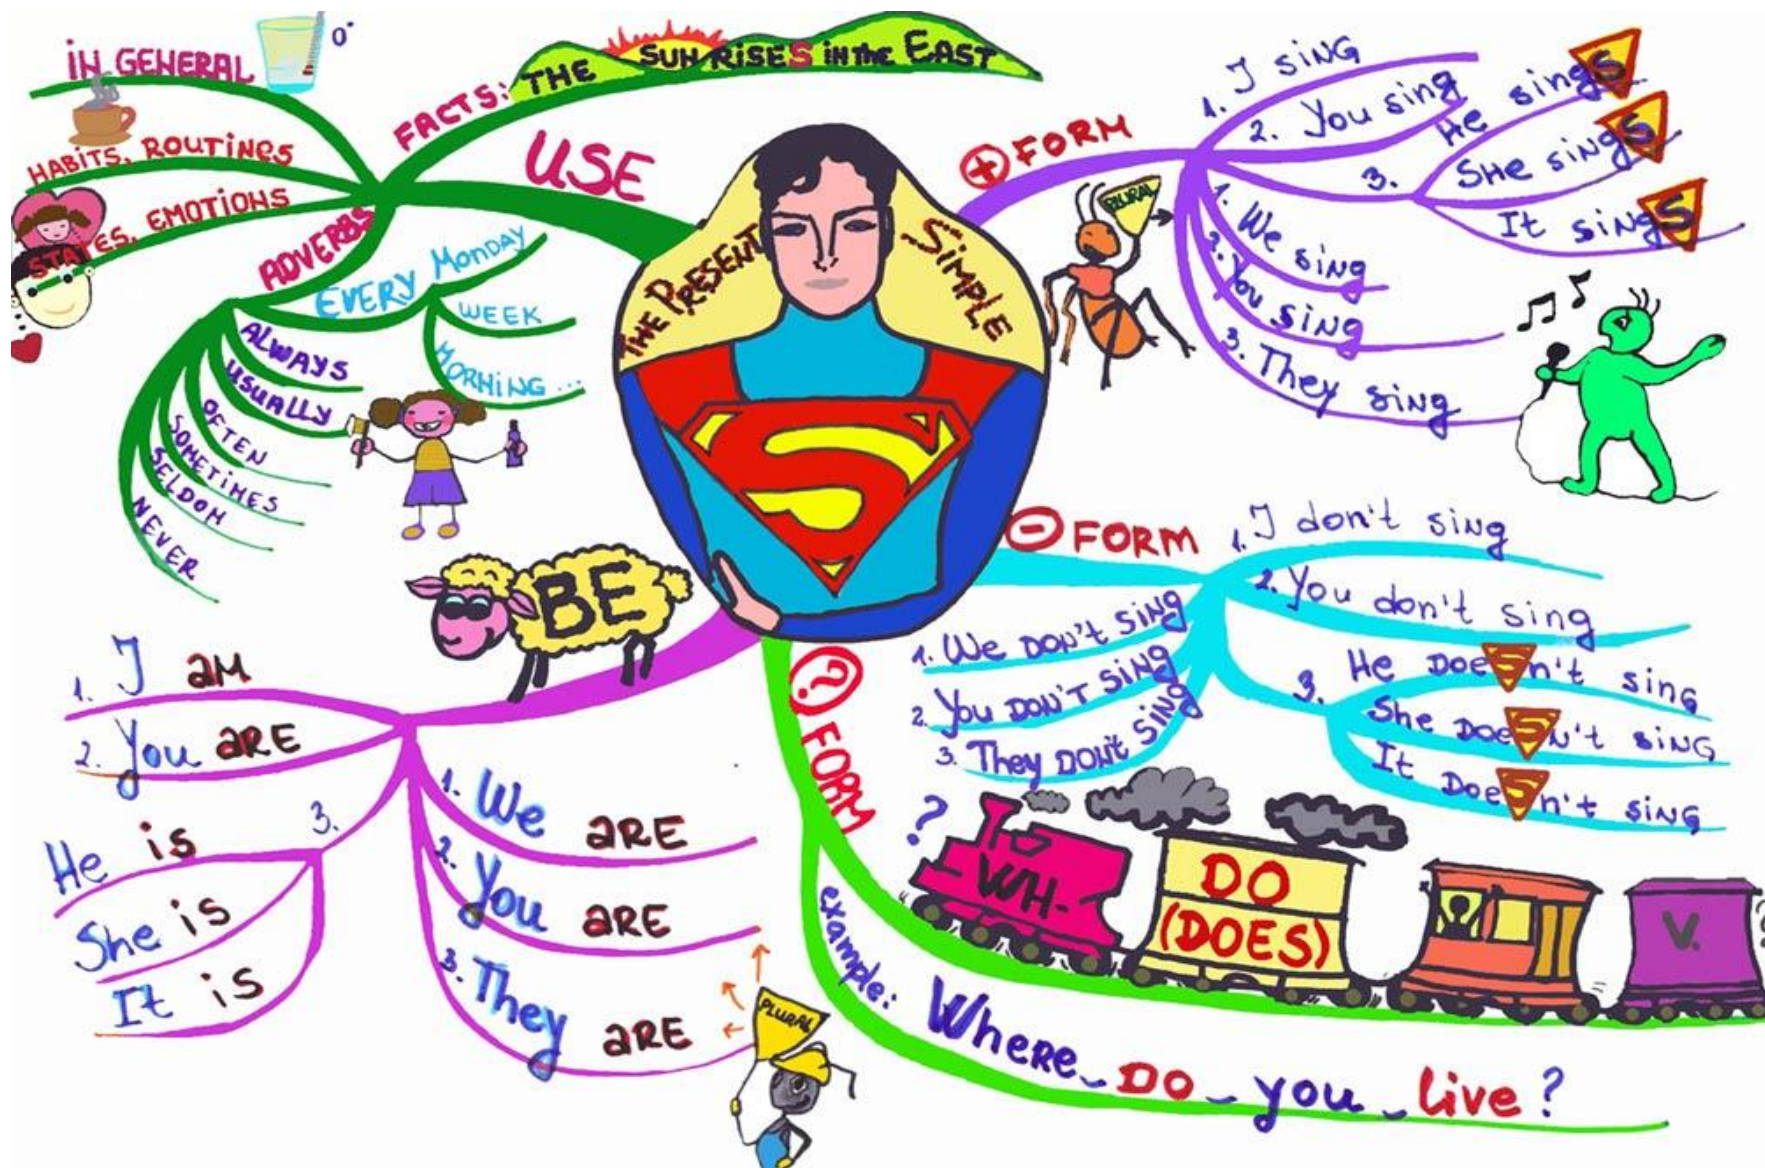 THE PRESENT SIMPLE
S
USE
IN GENERAL
0°
HABITS, ROUTINES
STATES, EMOTIONS
FACTS: THE SUN RISES IN the EAST
ADVERBS
EVERY MONDAY
WEEK
MORNING ...
ALWAYS
USUALLY
OFTEN
SOMETIMES
SELDOM
NEVER
+ FORM
1. I sing
2. You sing
3.
He singS
She singS
It singS
PLURAL
1. We sing
2. You sing
3. They sing
- FORM
1. I don't sing
2. You don't sing
3.
He DoeSn't sing
She DoeSn't sing
It DoeSn't sing
1. We DON'T SING
2. You DON'T SING
3. They DON'T SING
BE
1. I AM
2. You ARE
3.
He is
She is
It is
1. We ARE
2. You ARE
3. They ARE
PLURAL
? FORM
?
WH-
DO
(DOES)
V.
?
example:
Where DO you live?